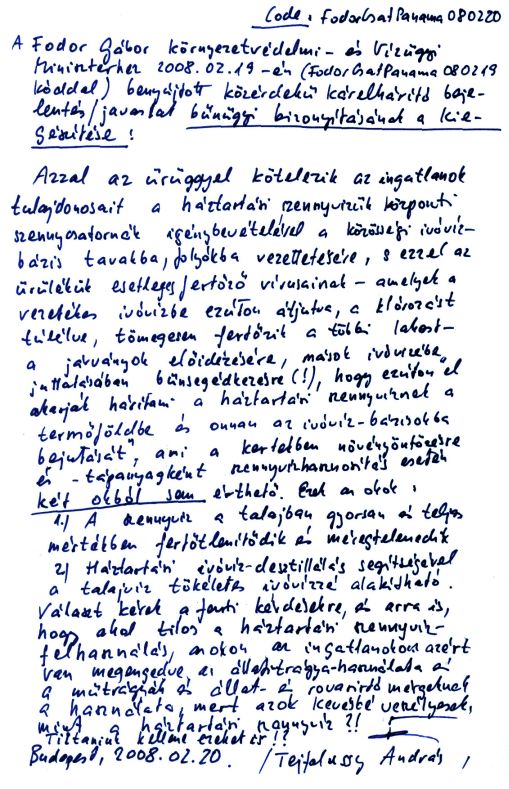 Code: FodorCsatPanama 080220
A Fodor Gábor környezetvédelmi- és Vízügyi
Miniszterhez 2008.02.19-én (FodorCsatPanama 080219
kóddal) benyújtott közérdekű kárelhárító beje-
lentés/javaslat bűnügyi bizonyításának a kie-
gészítése:
Azzal az ürüggyel kötelezik az ingatlanok
tulajdonosait a háztartási szennyvizük központi
szennycsatornák igénybevételével a közösségi ivóvíz-
bázis tavakba, folyókba vezettetésére, s ezzel az
ürülékük esetleges fertőző vírusainak - amelyek a
vezetékes ivóvízbe ezúton átjutva, a klórozást
túlélve, tömegesen fertőzik a többi lakost -
a járványok előidézésére, mások ivóvizébe
juttatásában bűnsegédkezésre (!), hogy ezúton "el
akarják hárítani a háztartási szennyvíznek a
termőföldbe és onnan az ivóvíz-bázisokba
bejutását", ami a kertekben növényöntözésre
és -tápanyagként szennyvízhasznosítás esetén
két okból sem érthető. Ezek az okok:
1.) A szennyvíz a talajban gyorsan és teljes
mértékben fertőtlenítődik és méregtelenedik
2) Háztartási ivóvíz-desztillálás segítségével
a talajvíz tökéletes ivóvízzé alakítható.
Választ kérek a fenti kérdésekre, és arra is,
hogy ahol tilos a háztartási szennyvíz-
felhasználás, azokon az ingatlanokon azért
van megengedve az állatitrágya-használata és
a műtrágyák és állat- és rovarirtó mérgeknek
a használata, mert azok kevésbé veszélyesek,
mint a háztartási szennyvíz?!
Tiltaniuk kellene ezeket is!!
Budapest, 2008.02.20. /Tejfalussy András,